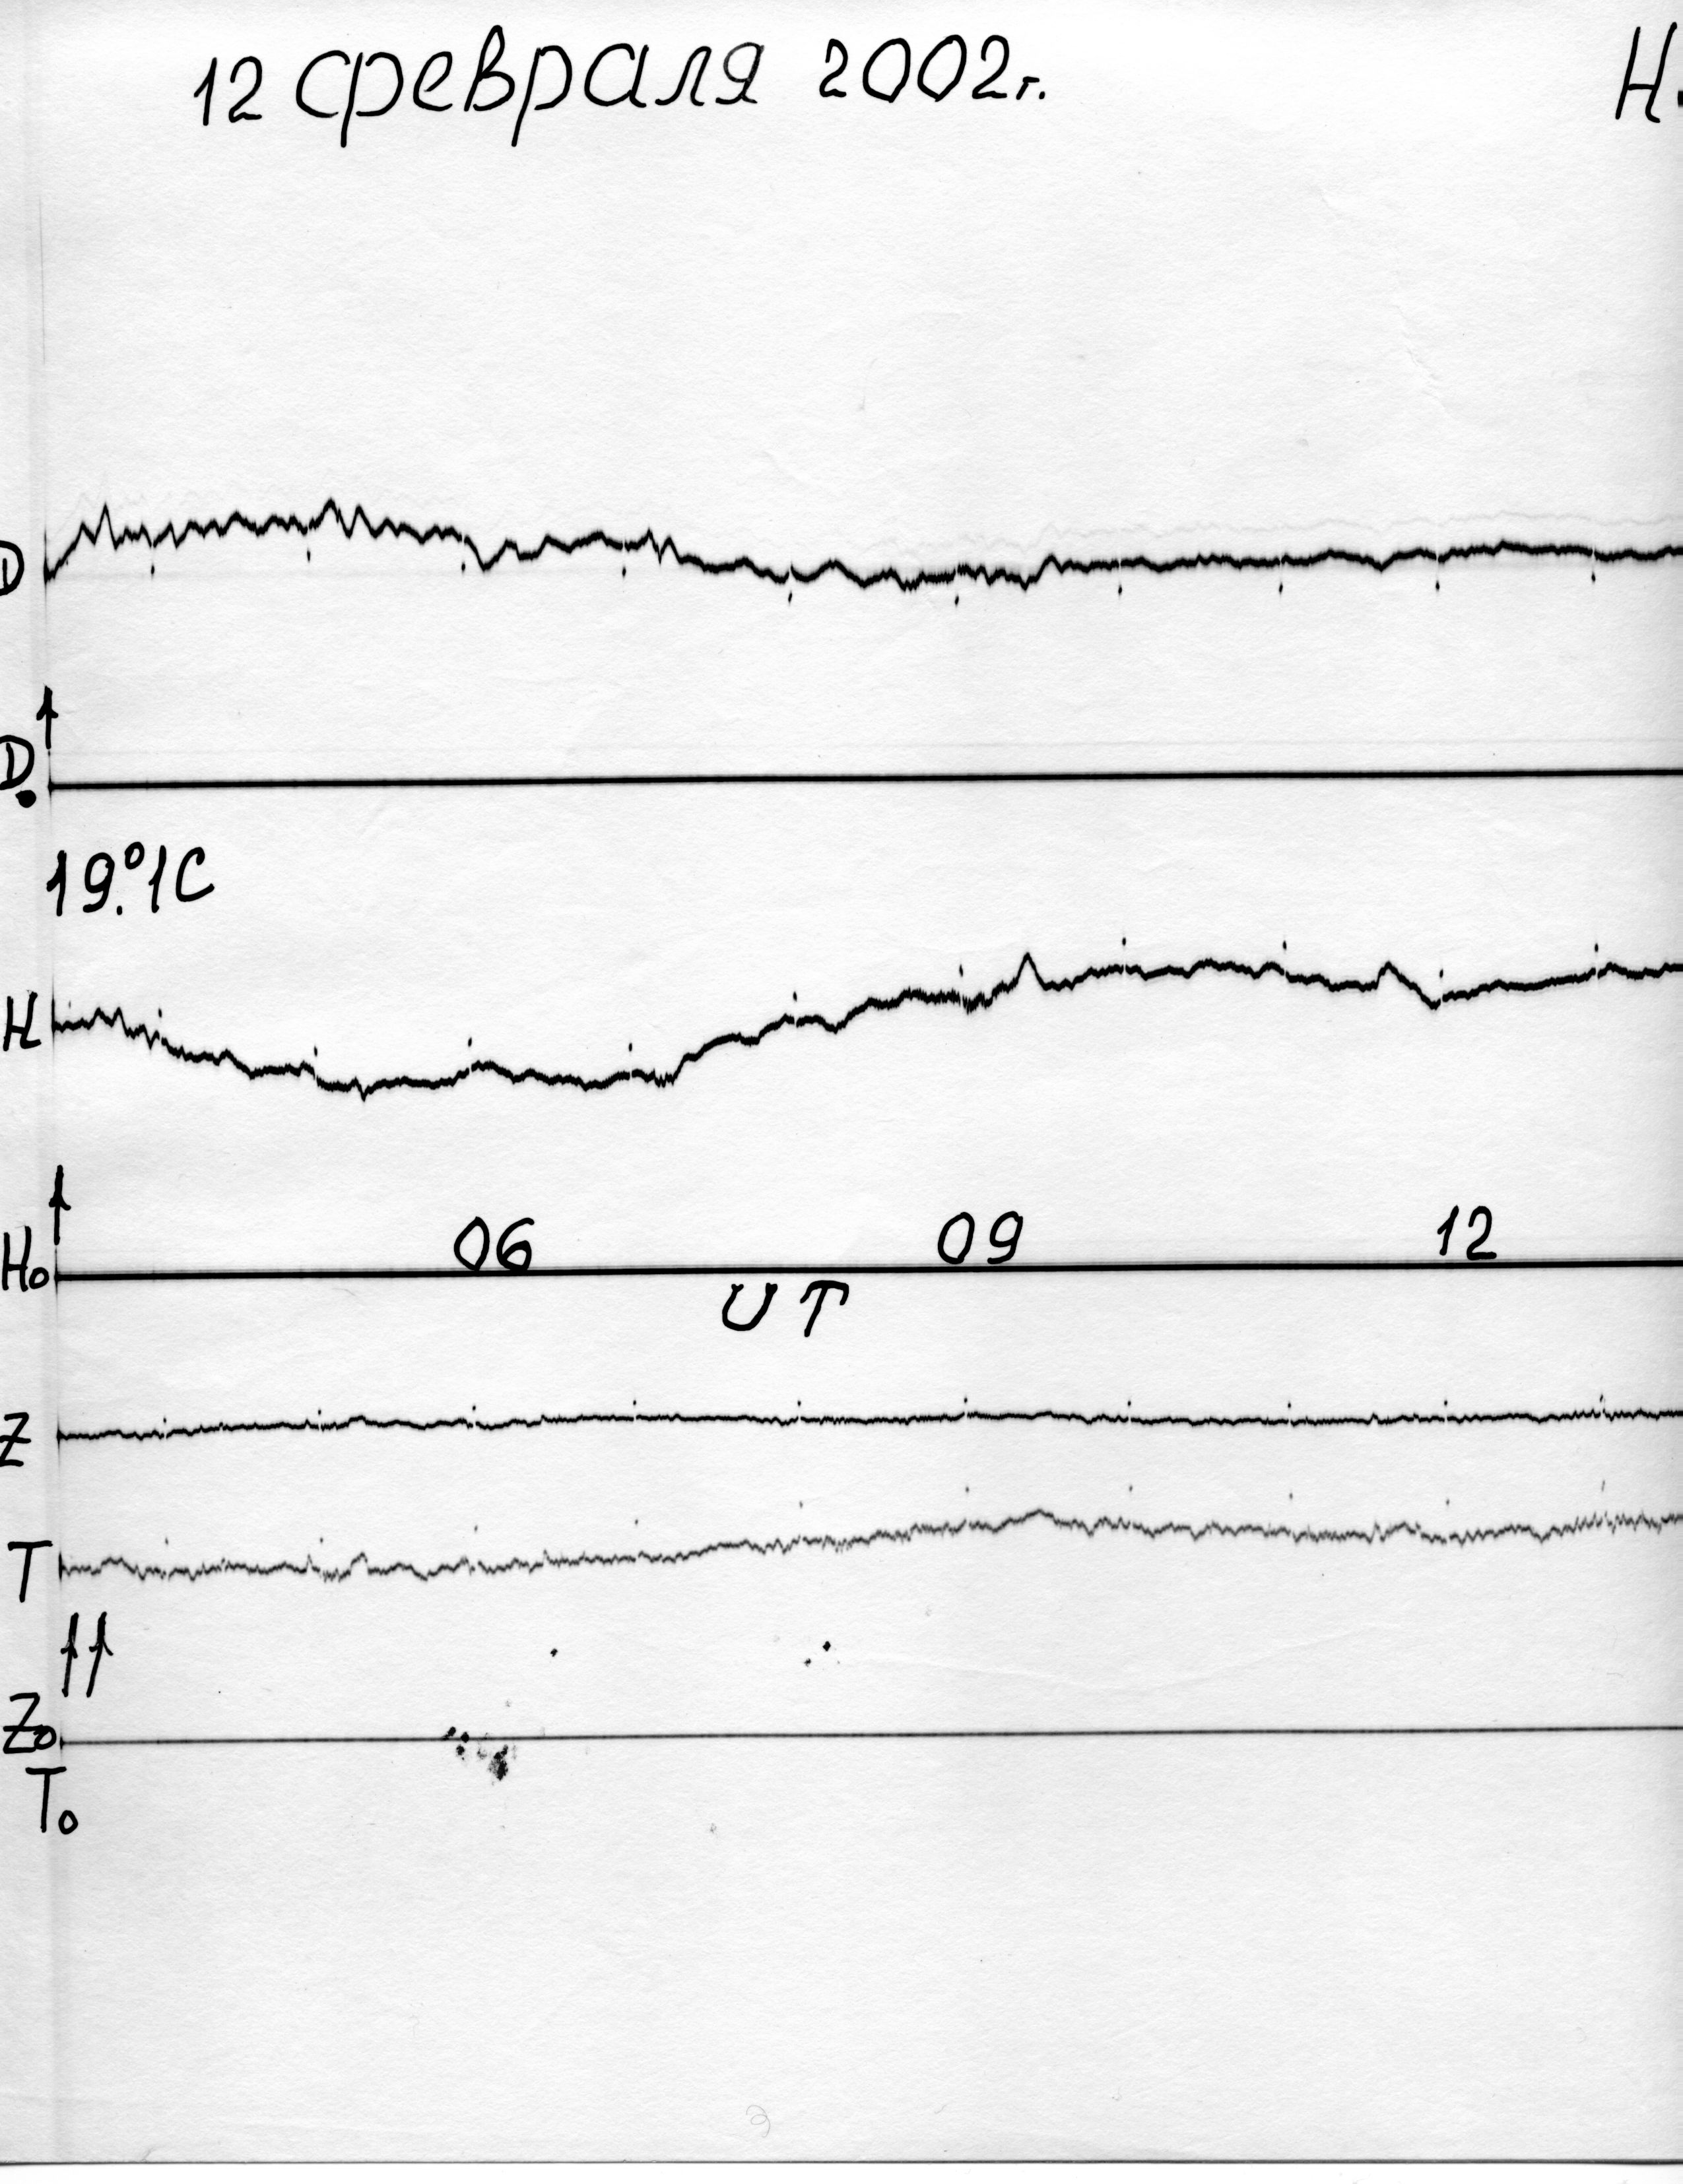 12 февраля 2002г. H.
D
D.
19.°1C
H
Ho
06 09 12
UT
Z
T
Zo
To